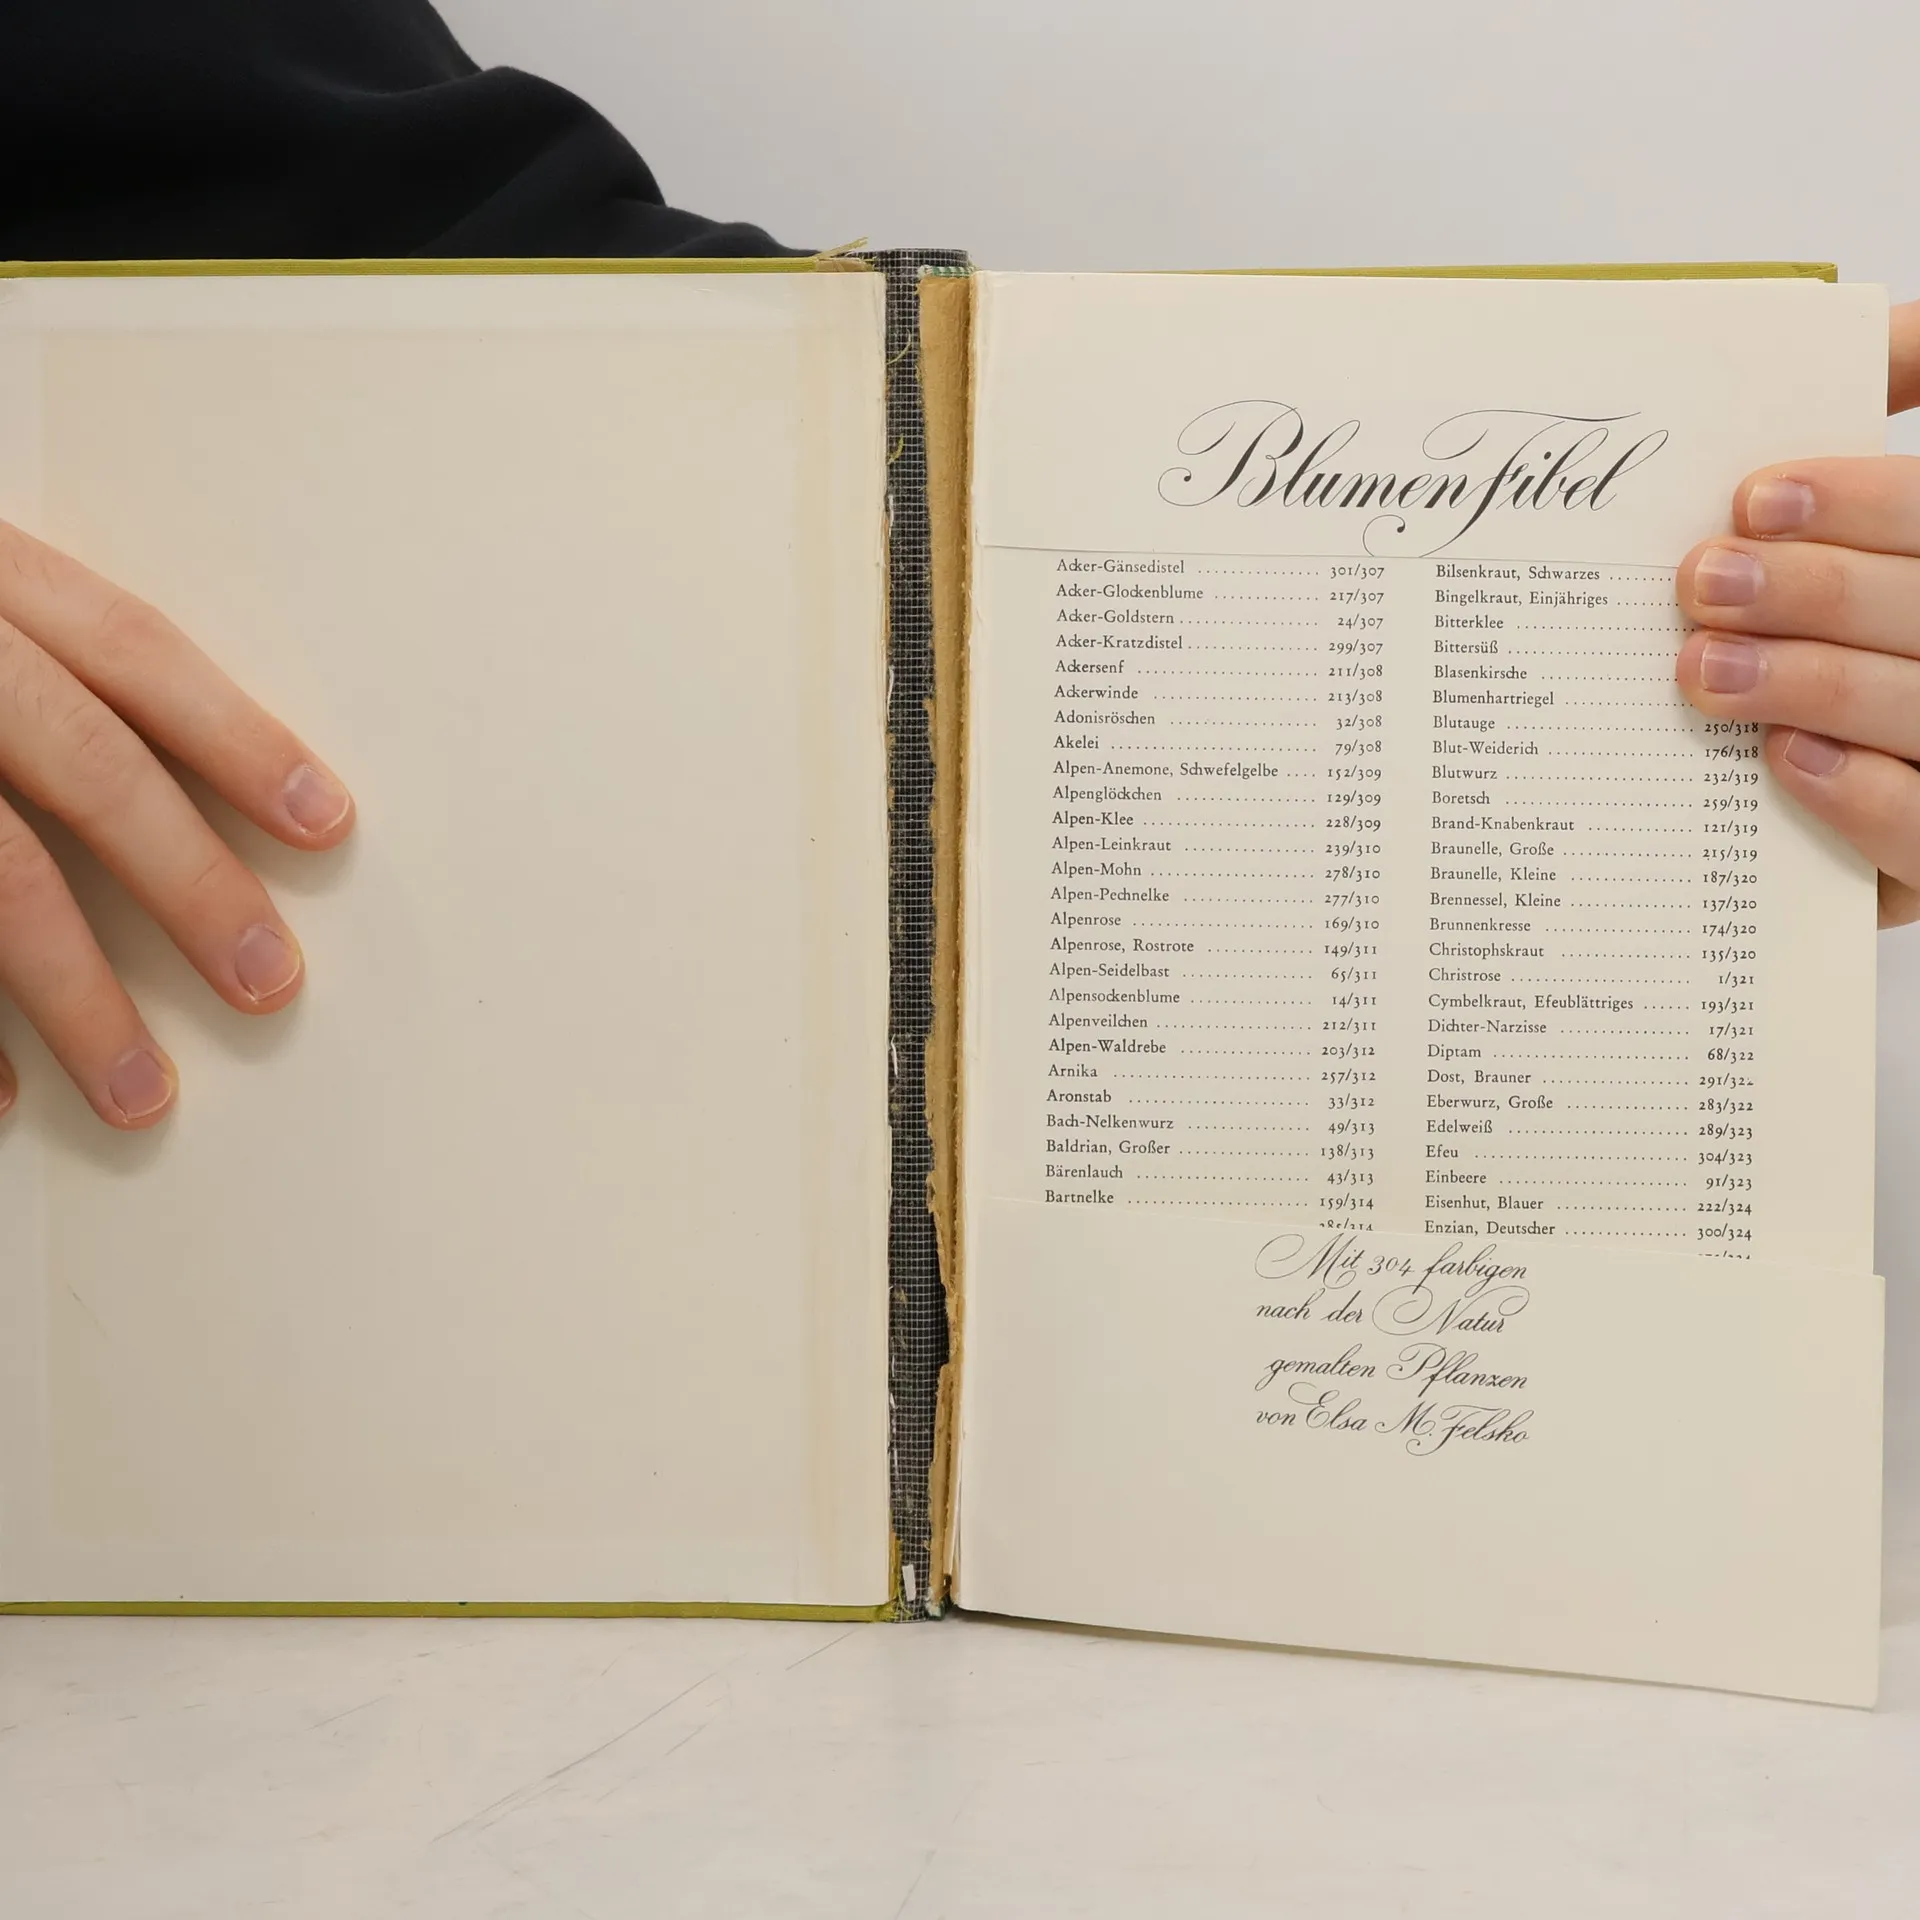 Blumen Fibel
Acker-Gänsedistel ............... 301/307
Acker-Glockenblume ............. 217/307
Acker-Goldstern ................ 24/307
Acker-Kratzdistel ............... 299/307
Ackersenf .................... 211/308
Ackerwinde ................... 213/308
Adonisröschen ................. 32/308
Akelei ....................... 79/308
Alpen-Anemone, Schwefelgelbe .... 152/309
Alpenglöckchen ................ 129/309
Alpen-Klee .................... 228/309
Alpen-Leinkraut ................ 239/310
Alpen-Mohn ................... 278/310
Alpen-Pechnelke ................ 277/310
Alpenrose ..................... 169/310
Alpenrose, Rostrote ............. 149/311
Alpen-Seidelbast ................ 65/311
Alpensockenblume .............. 14/311
Alpenveilchen .................. 212/311
Alpen-Waldrebe ................ 203/312
Arnika ....................... 257/312
Aronstab ..................... 33/312
Bach-Nelkenwurz ............... 49/313
Baldrian, Großer ................ 138/313
Bärenlauch .................... 43/313
Bartnelke ..................... 159/314
Bilsenkraut, Schwarzes ........
Bingelkraut, Einjähriges .......
Bitterklee ......................
Bittersüß ......................
Blasenkirsche ..................
Blumenhartriegel ...............
Blutauge ...................... 250/318
Blut-Weiderich ................. 176/318
Blutwurz ...................... 232/319
Boretsch ...................... 259/319
Brand-Knabenkraut ............. 121/319
Braunelle, Große ................ 215/319
Braunelle, Kleine ............... 187/320
Brennessel, Kleine ............... 137/320
Brunnenkresse .................. 174/320
Christophskraut ................ 135/320
Christrose ..................... 1/321
Cymbelkraut, Efeublättriges ...... 193/321
Dichter-Narzisse ................ 17/321
Diptam ....................... 68/322
Dost, Brauner .................. 291/322
Eberwurz, Große ................ 283/322
Edelweiß ...................... 289/323
Efeu ......................... 304/323
Einbeere ...................... 91/323
Eisenhut, Blauer ................ 222/324
Enzian, Deutscher ............... 300/324
Mit 304 farbigen
nach der Natur
gemalten Pflanzen
von Elsa M. Felsko